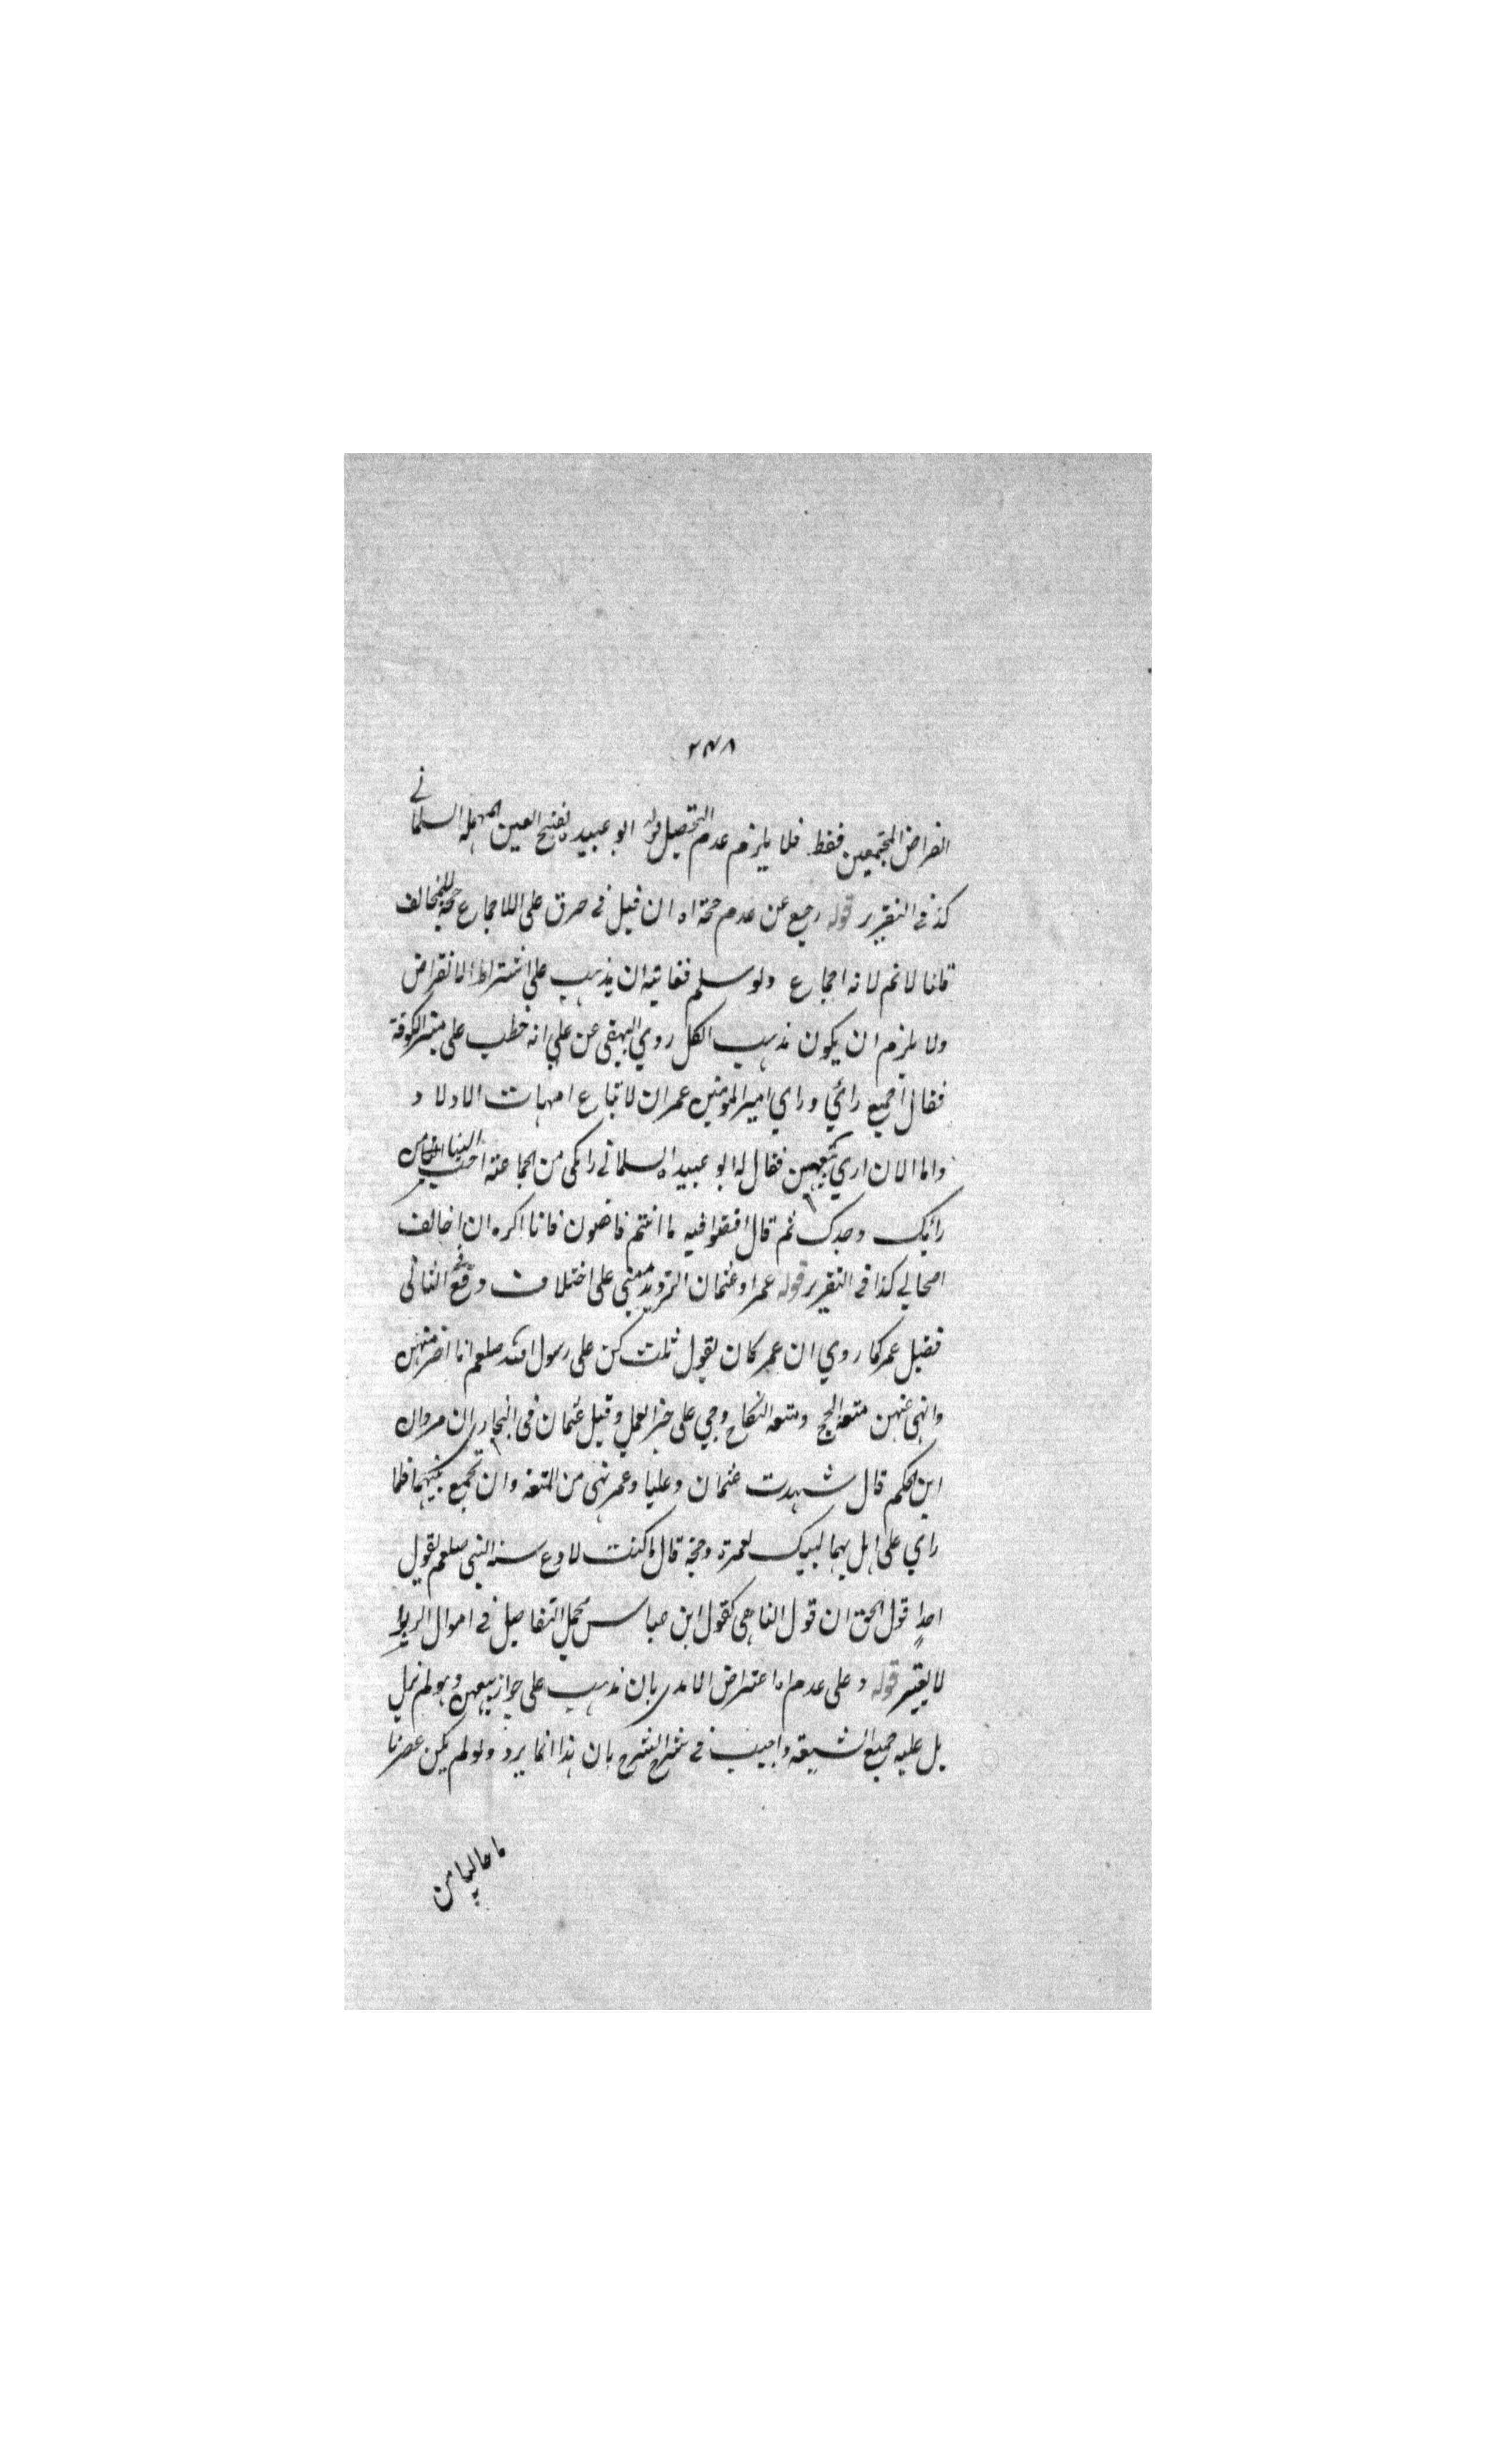 ٢٣٨
انقراض المجتمعين فقط فلا يلزم عدم التحصيل قوله ابو عبيده بفتح العين المهملة السلماني
كذا في التقرير قوله رجيع عن عدم حجة اه ان قيل في صرق على اللاجماع حجة للمخالف
قلنا لا نم لا نه اجماع ولو سلم فغايته ان يذهب على اشتراط الانقراض
ولا يلزم ان يكون مذهب الكل روي البيهقي عن علي انه خطب على منبر الكوفة
فقال اجميع رائي وراي امير المومنين عمر ان لا تباع امهات الاولاد
واما الان اري بيعهن فقال له ابو عبيده السلماني رايك من الجماعة احب الينا من
رائيك وحدك ثم قال اقضوا فيه ما انتم قاضون فانا اكره ان اخالف
اصحابي كذا في التقرير قوله عمر او عثمان الترديد مبني على اختلاف وقع الثاني
فقيل عمر كما روي ان عمر كان يقول ثلث كن على رسول الله صلعم انا منهن
وانهى عنهن متعة الحج ومتعة النكاح وحي على خير العمل وقيل عثمان في البخاري ان مروان
ابن الحكم قال شهدت عثمان وعليا وعمر نهى من المتعة وان تجمع بينهما فلما
راي علي اهل بهما لبيك بعمرة وحجة قال ما كنت لادع سنة النبي صلعم لقول
احد قول الحق ان قول الناهي كقول ابن عباس محل التفاصيل في اموال الربوا
لا يعتبر قوله وعلى عدم اه اعتراض الامدي بان مذهب علي جواز بيعهن وهو لم نزل
بل عليه جميع الشيعة واجيب في شرح الشرح بان هذا انما يرد ولو لم يكن عصرنا